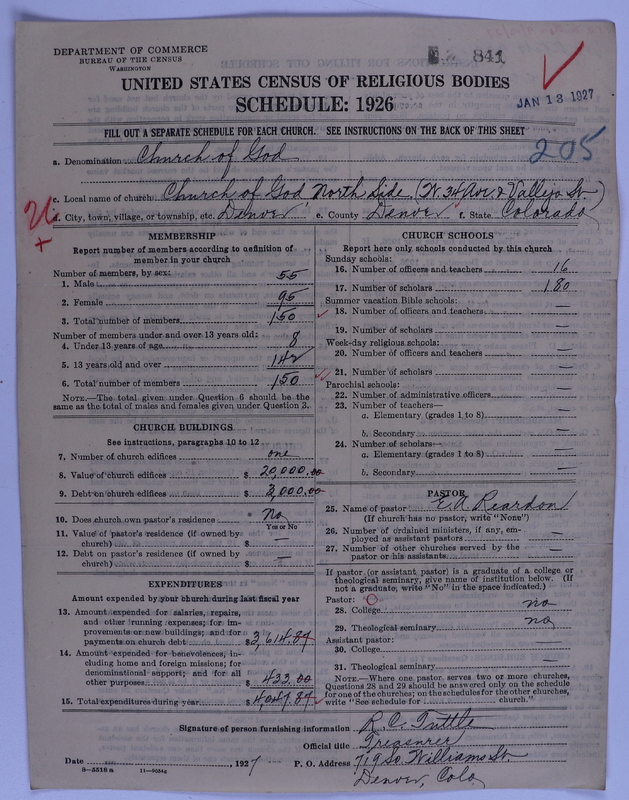 DEPARTMENT OF COMMERCE
BUREAU OF THE CENSUS
WASHINGTON
841
JAN 13 1927
UNITED STATES CENSUS OF RELIGIOUS BODIES
SCHEDULE: 1926
FILL OUT A SEPARATE SCHEDULE FOR EACH CHURCH. SEE INSTRUCTIONS ON THE BACK OF THIS SHEET
205
a. Denomination Church of God
c. Local name of church Church of God North Side (W. 34 Ave & Vallejo St)
d. City, town, village, or township, etc. Denver e. County Denver f. State Colorado
MEMBERSHIP
Report number of members according to definition of
member in your church
Number of members, by sex:
1. Male 55
2. Female 95
3. Total number of members 150
Number of members under and over 13 years old:
4. Under 13 years of age 8
5. 13 years old and over 142
6. Total number of members 150
NOTE.—The total given under Question 6 should be
same as the total of males and females given under Question 3.
CHURCH BUILDINGS
See instructions, paragraphs 10 to 12
7. Number of church edifices one
8. Value of church edifices $ 20,000.00
9. Debt on church edifices $ 3,000.00
10. Does church own pastor's residence No
Yes or No
11. Value of pastor's residence (if owned by
church) $ —
12. Debt on pastor's residence (if owned by
church) $ —
EXPENDITURES
Amount expended by your church during last fiscal year
13. Amount expended for salaries, repairs,
and other running expenses; for im-
provements or new buildings; and for
payments on church debt $ 3,614.87
14. Amount expended for benevolences, in-
cluding home and foreign missions; for
denominational support; and for all
other purposes $ 433.00
15. Total expenditures during year $ 4,047.87
CHURCH SCHOOLS
Report here only schools conducted by this church
Sunday schools:
16. Number of officers and teachers 16
17. Number of scholars 180
Summer vacation Bible schools:
18. Number of officers and teachers —
19. Number of scholars —
Week-day religious schools:
20. Number of officers and teachers —
21. Number of scholars —
Parochial schools:
22. Number of administrative officers —
23. Number of teachers—
a. Elementary (grades 1 to 8) —
b. Secondary —
24. Number of scholars—
a. Elementary (grades 1 to 8) —
b. Secondary —
PASTOR
25. Name of pastor E. A. Reardon
(If church has no pastor, write "None")
26. Number of ordained ministers, if any, em-
ployed as assistant pastors —
27. Number of other churches served by the
pastor or his assistants —
If pastor (or assistant pastor) is a graduate of a college or
theological seminary, give name of institution below. (If
not a graduate, write "No" in the space indicated.)
Pastor: O
28. College no
29. Theological seminary no
Assistant pastor:
30. College —
31. Theological seminary —
NOTE.—Where one pastor serves two or more churches,
Questions 28 and 29 should be answered only on the schedule
for one of the churches; on the schedules for the other churches,
write "See schedule for church."
Signature of person furnishing information R. C. Tuttle
Official title Treasurer
Date , 1927 P. O. Address 719 So. Williams St.
8—5518 a 11—9054g Denver, Colo